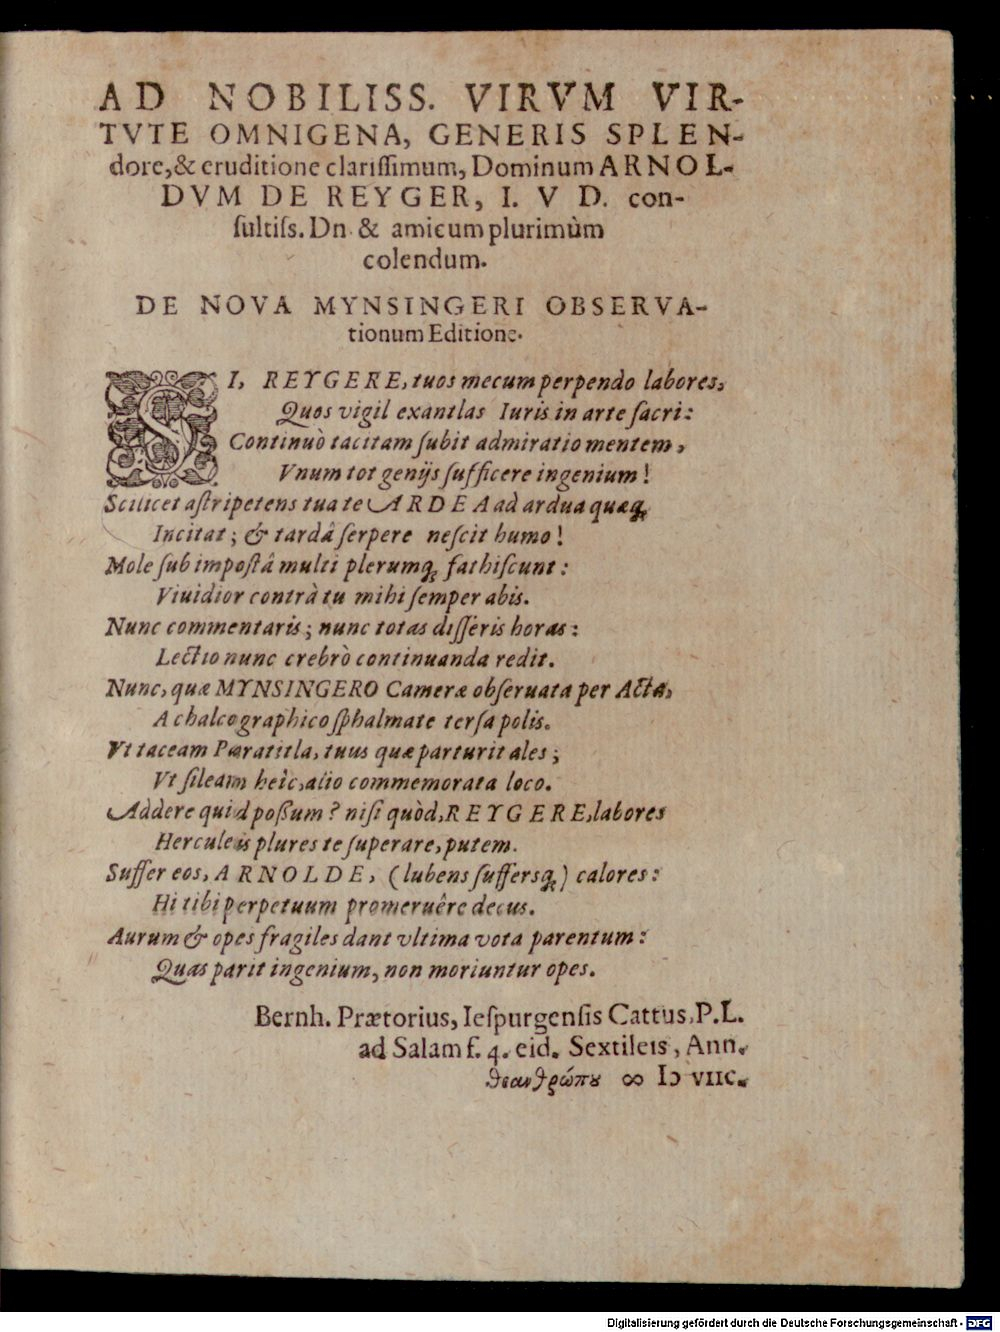 AD NOBILISS. VIRVM VIR-
TVTE OMNIGENA, GENERIS SPLEN-
dore, & eruditione clariſſimum, Dominum ARNOL-
DVM DE REYGER, I. V D. con-
ſultiſs. Dn. & amicum plurimùm
colendum.
DE NOVA MYNSINGERI OBSERVA-
tionum Editione.
SI, REYGERE, tuos mecum perpendo labores,
Quos vigil exantlas Iuris in arte ſacri:
Continuò tacitam ſubit admiratio mentem,
Vnum tot genijs ſufficere ingenium!
Scilicet aſtripetens tua te ARDEA ad ardua quæq;
Incitat; & tardâ ſerpere neſcit humo!
Mole ſub impoſtâ multi plerumq; fathiſcunt:
Viuidior contrà tu mihi ſemper abis.
Nunc commentaris; nunc totas diſſeris horas:
Lectio nunc crebrò continuanda redit.
Nunc, quæ MYNSINGERO Cameræ obſeruata per Acta,
A chalcographico ſphalmate terſa polis.
Vt taceam Paratitla, tuus quæ parturit ales;
Vt ſileam heìc, alio commemorata loco.
Addere quid poßum? niſi quòd, REYGERE, labores
Herculeis plures te ſuperare, putem.
Suffer eos, ARNOLDE, (lubens ſuffersq;) calores:
Hi tibi perpetuum promeruêre decus.
Aurum & opes fragiles dant vltima vota parentum:
Quas parit ingenium, non moriuntur opes.
Bernh. Prætorius, Ieſpurgenſis Cattus. P. L.
ad Salam f. 4. eid. Sextileis, Ann.
θεανθρώπȣ ∞ IↃ VIIC.
Digitalisierung gefördert durch die Deutsche Forschungsgemeinschaft - DFG